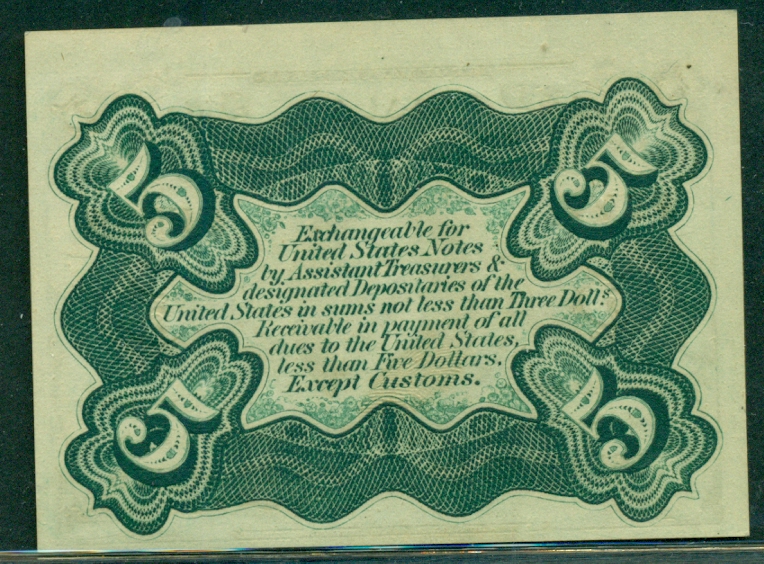 5
5
Exchangeable for
United States Notes
by Assistant Treasurers &
designated Depositaries of the
United States in sums not less than Three Dolls
Receivable in payment of all
dues to the United States,
less than Five Dollars.
Except Customs.
5
5